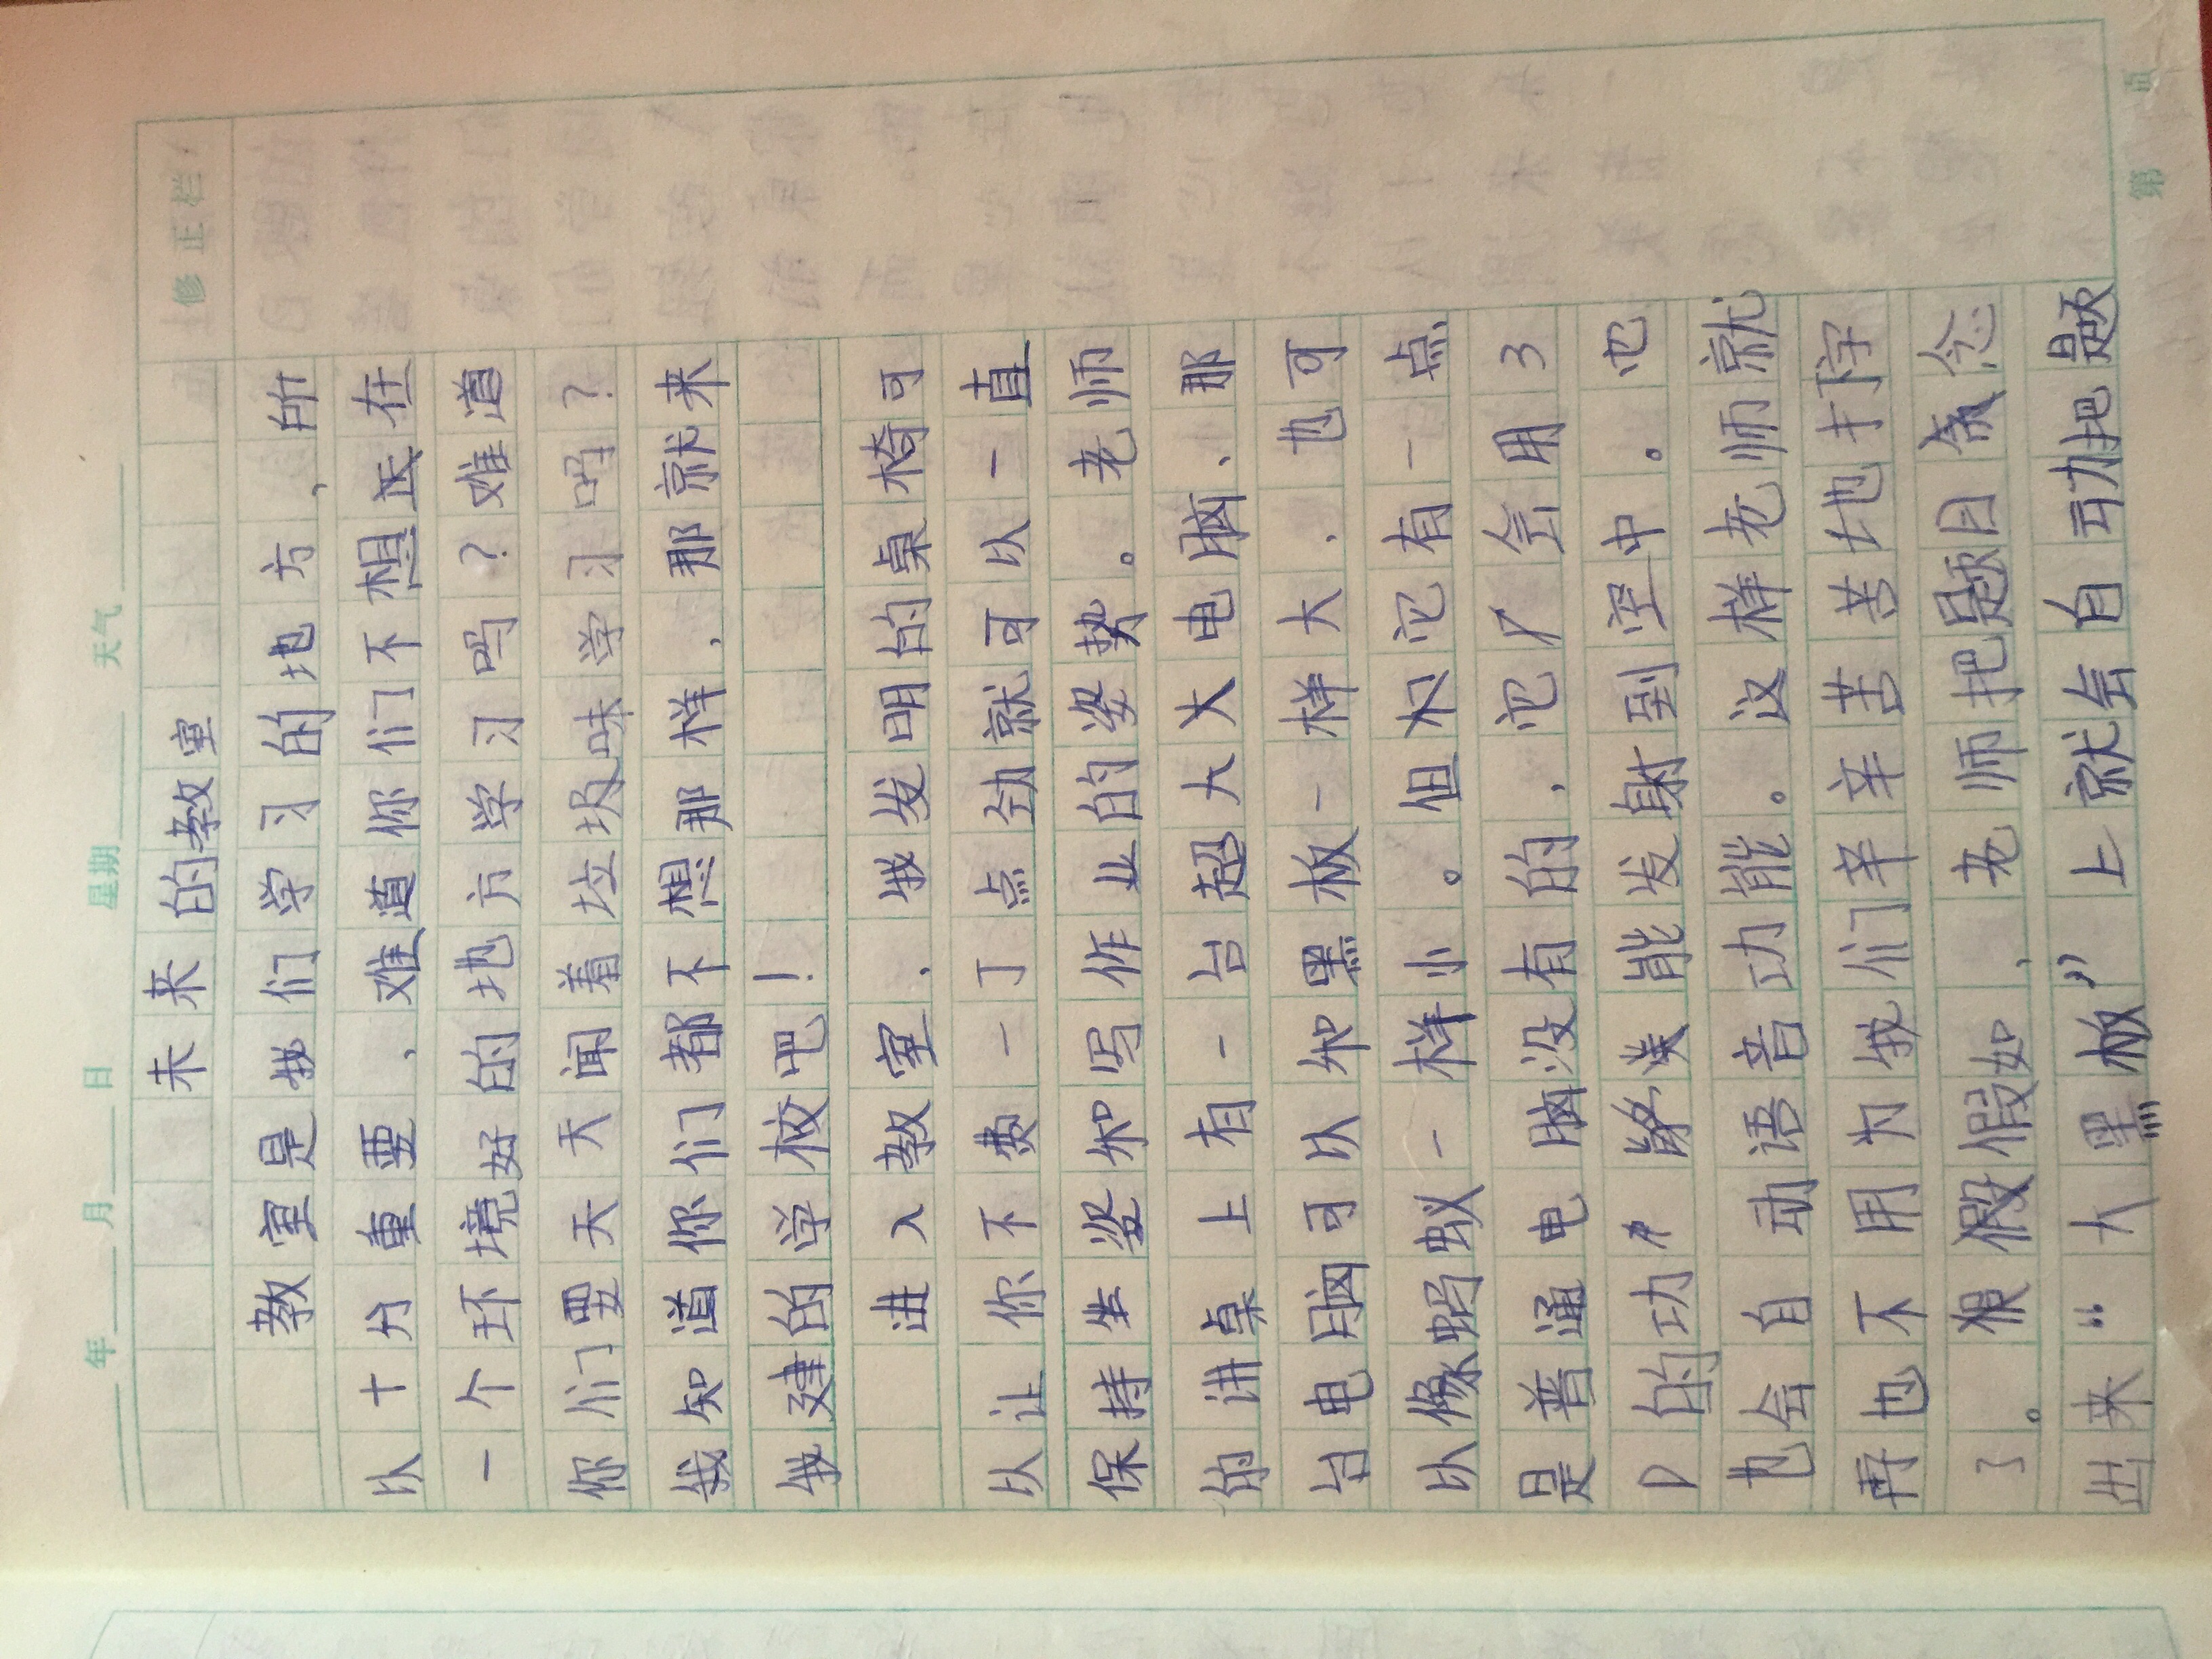 年 月 日 星期 天气
修正栏
未来的教室
教室是我们学习的地方，所
以十分重要，难道你们不想在
一个环境好的地方学习吗？难道
你们要天天闻着垃圾味学习吗？
我知道你们都不想那样，那就来
我建的学校吧！
进入教室，我发明的桌椅可
以让你不费一丁点劲就可以一直
保持坐姿和写作业的姿势。老师
的讲桌上有一台超大大电脑，那
台电脑可以和黑板一样大，也可
以像蚂蚁一样小。但它有一点
是普通电脑没有的，它会用3
D的功能发射到空中。它
也会自动语音功能。这样老师就
再也不用为我们辛辛苦苦地打字
了。假如，老师把题目念
出来“大黑板”上就会自动把题
第 页